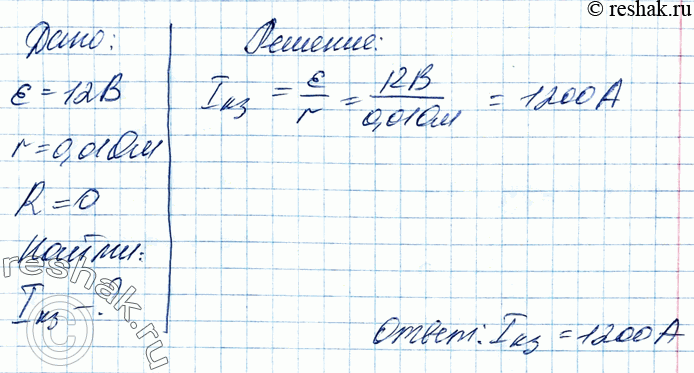 © reshak.ru
Дано:
ε = 12В
r = 0,01Ом
R = 0
Найти:
Iкз - ?
Решение:
Iкз = ε/r = 12В/0,01Ом = 1200А
Ответ: Iкз = 1200А
reshak.ru